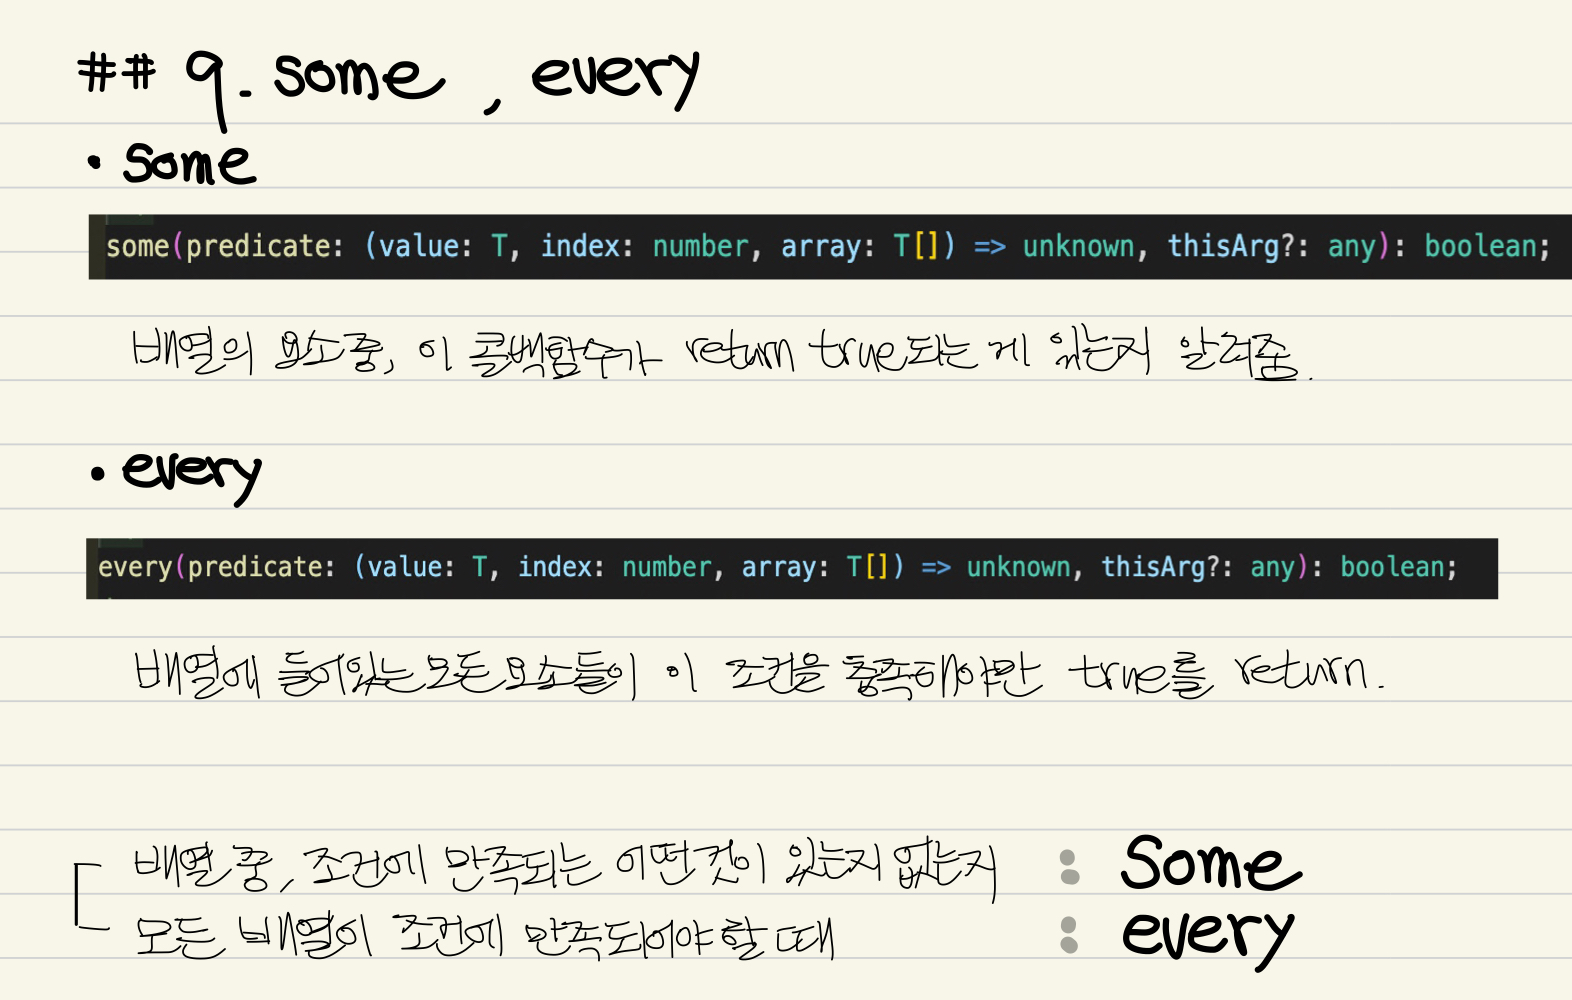 ## 9. some, every
• some
some(predicate: (value: T, index: number, array: T[]) => unknown, thisArg?: any): boolean;
배열의 요소중, 이 콜백함수가 return true되는 게 있는지 알려줌.
• every
every(predicate: (value: T, index: number, array: T[]) => unknown, thisArg?: any): boolean;
배열에 들어있는 모든 요소들이 이 조건을 충족해야만 true를 return.
배열 중, 조건에 만족되는 어떤것이 있는지 없는지 : Some
모든 배열이 조건에 만족되어야 할 때 : every